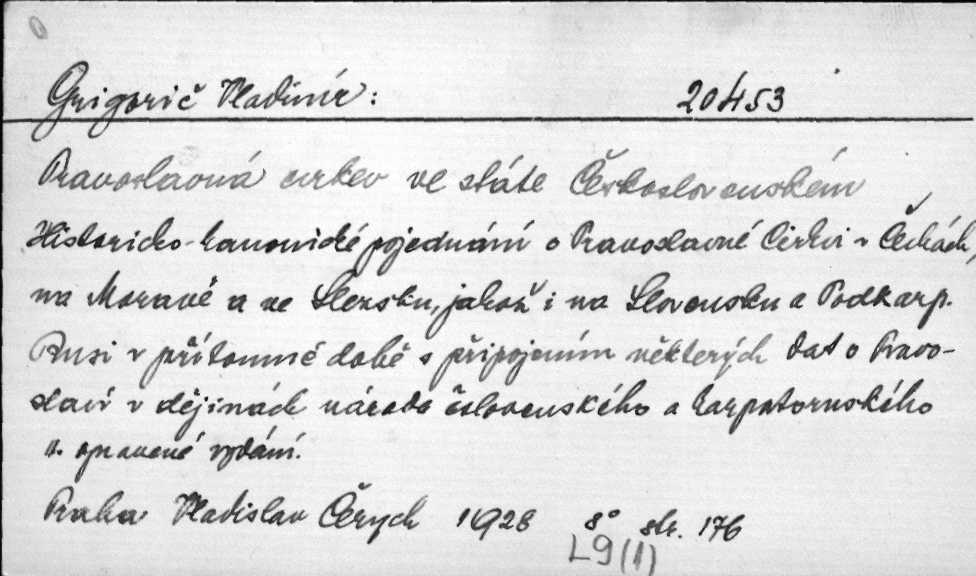 Grigorič Vladimír: 20453
Pravoslavná cirkev ve státe Československém
Historicko-kanonické pojednání o Pravoslavné Cirkvi v Čechách,
na Moravě a ve Slezsku, jakož i na Slovensku a Podkarp.
Rusi v přítomné době s připojením některých dat o Pravo-
slaví v dějinách národa čslovenského a karpatoruského
II. opravené vydání.
Praha Vladislav Čerych 1928 8° str. 176
L9(1)